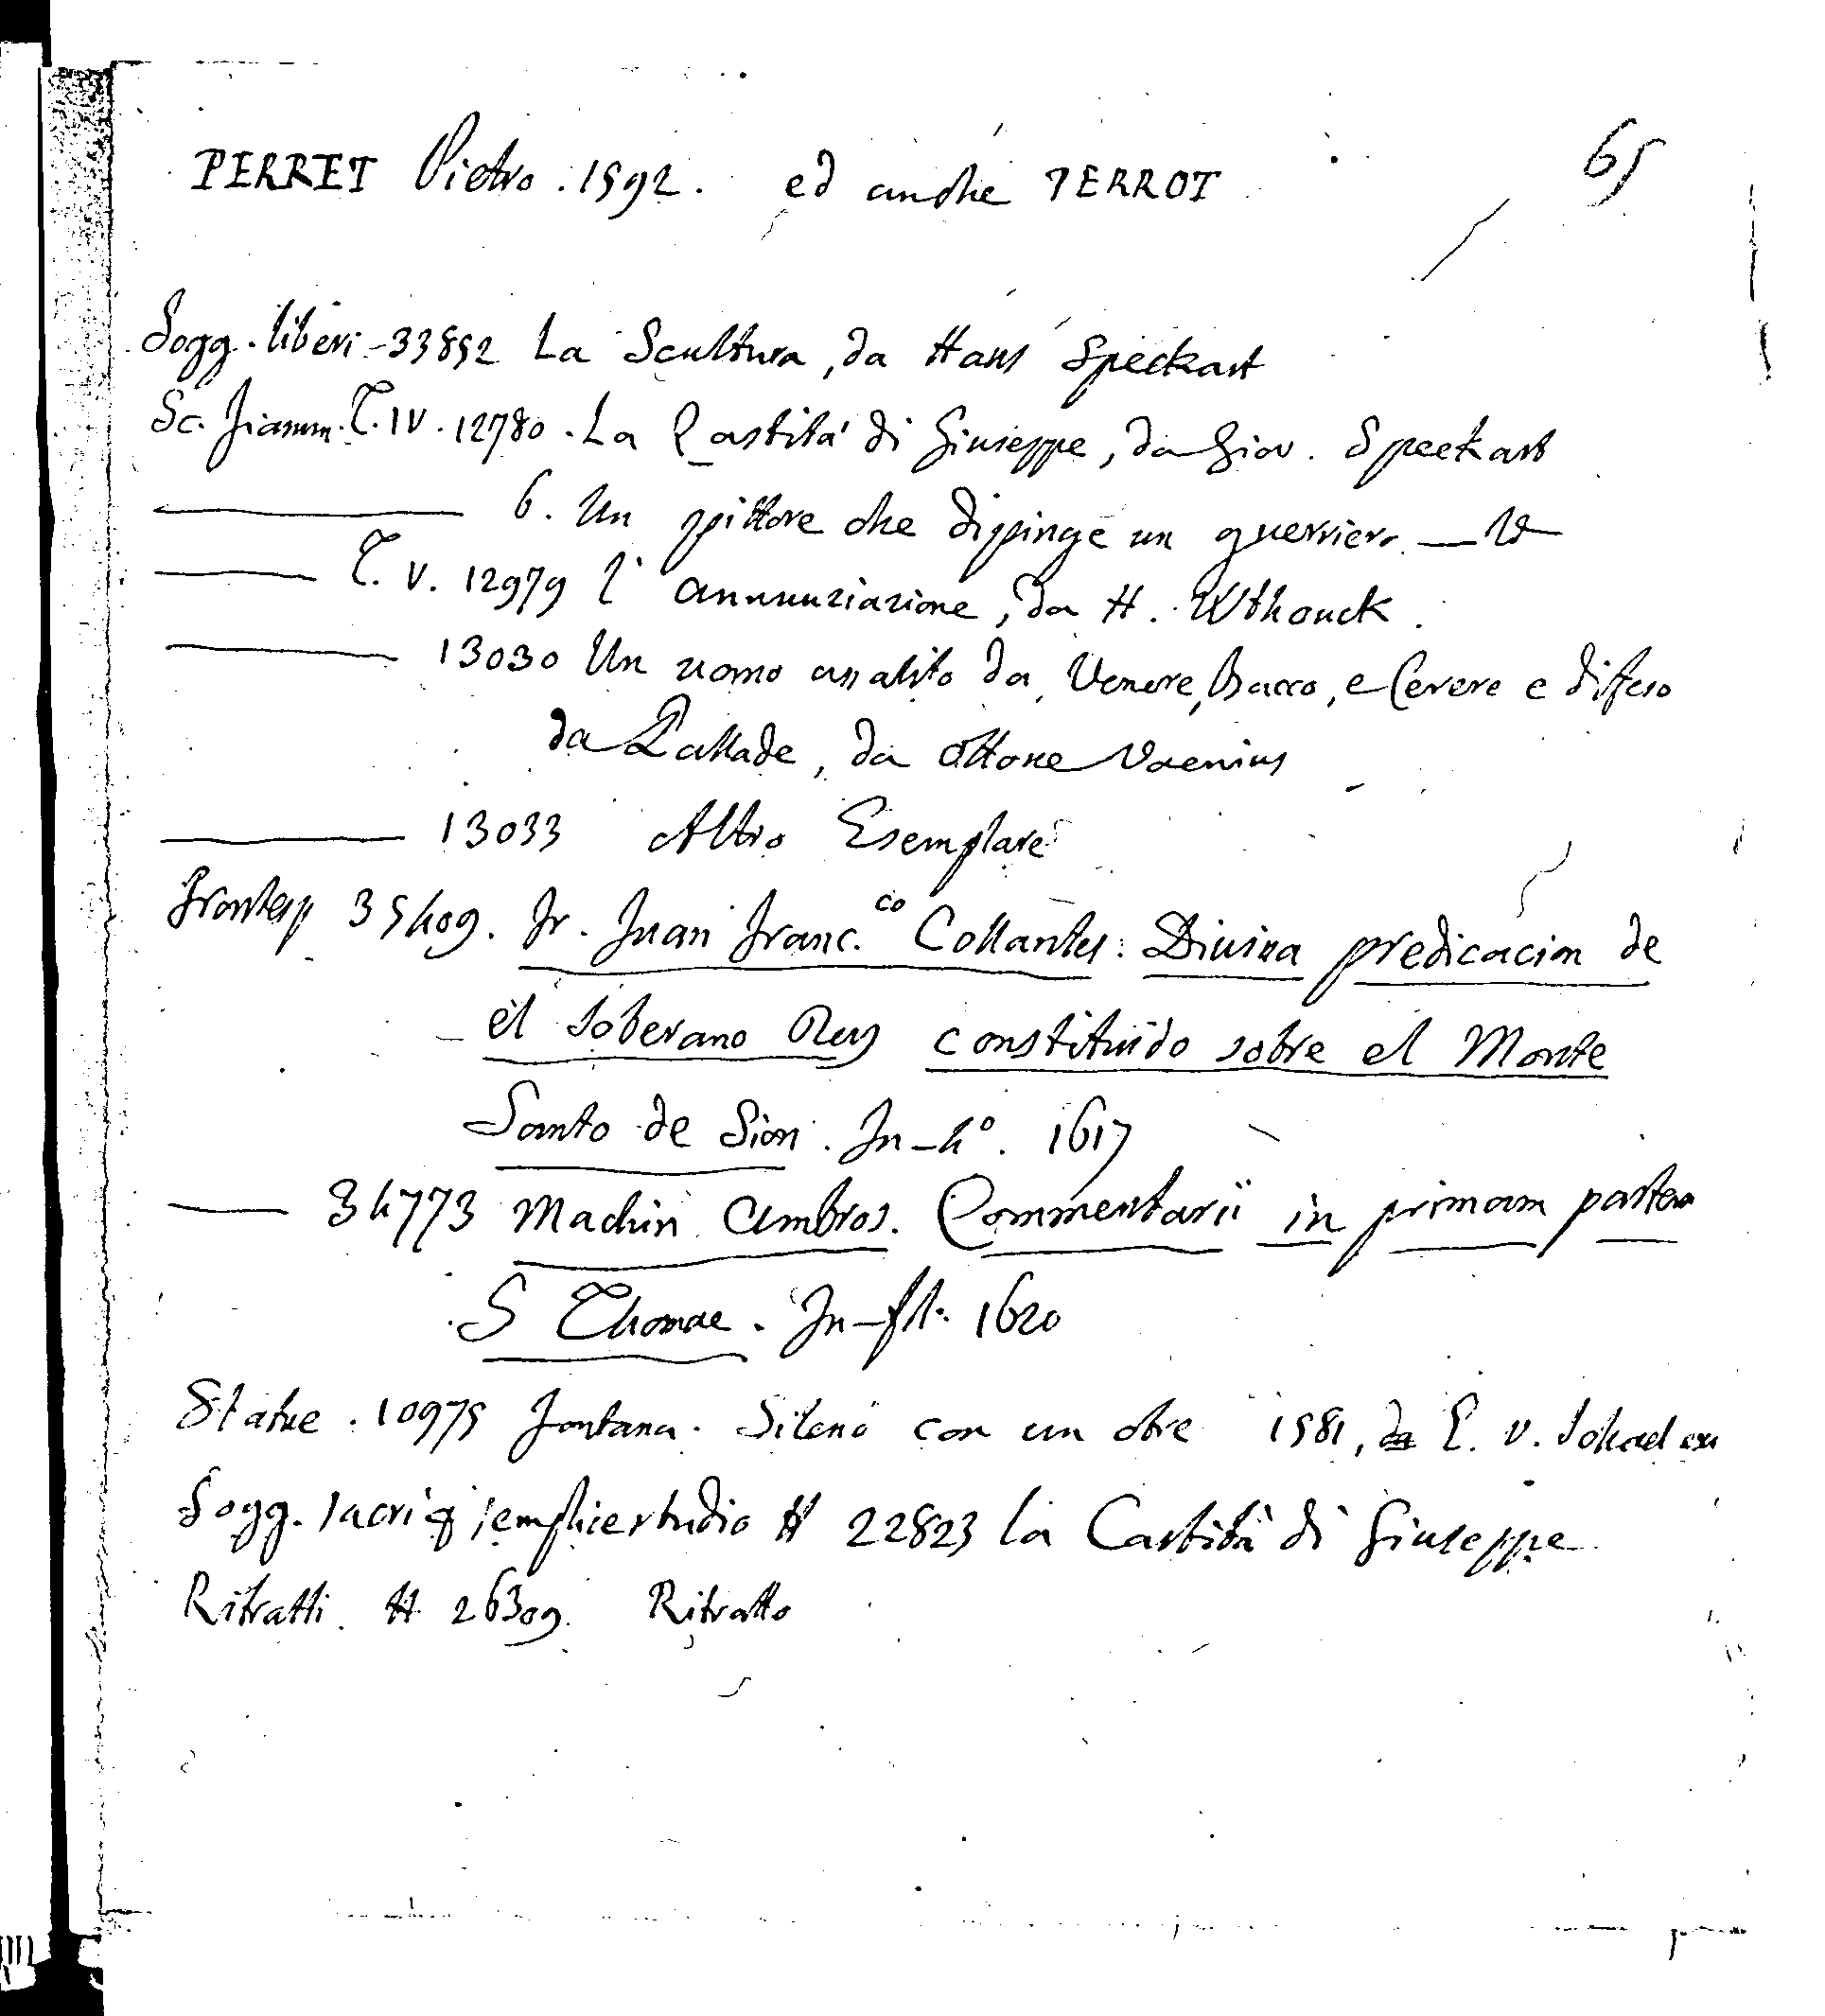 65
PERRET Pietro. 1592. ed anche PERROT
Sogg. liberi - 33852 La Scultura, da Hans Speckart
Sc. Fiamm. T. IV. 12780. La Castità di Giuseppe, da Giov. Speckart
6. Un pittore che dipinge un guerriero — Id
T. V. 12979 l'annunziazione, da H. Wthouck.
13030 Un uomo assalito da Venere, Bacco, e Cerere e difeso
da Pallade, da Ottone Vaenius
13033 Altro Esemplare
Frontesp 35409. Fr. Juan Franc.co Collantes. Divina predicacion de
el soberano Rey constituido sobre el Monte
Santo de Sion. In-4°. 1617
34773 Machin Ambros. Commentarii in primam partem
S Thomae. In-fl. 1620
Statue. 10975 Fontana. Sileno con un otre 1581, da C. v.
Sogg. sacri semplice studio H 22823 la Castità di Giuseppe
Ritratti. H 26309. Ritratto